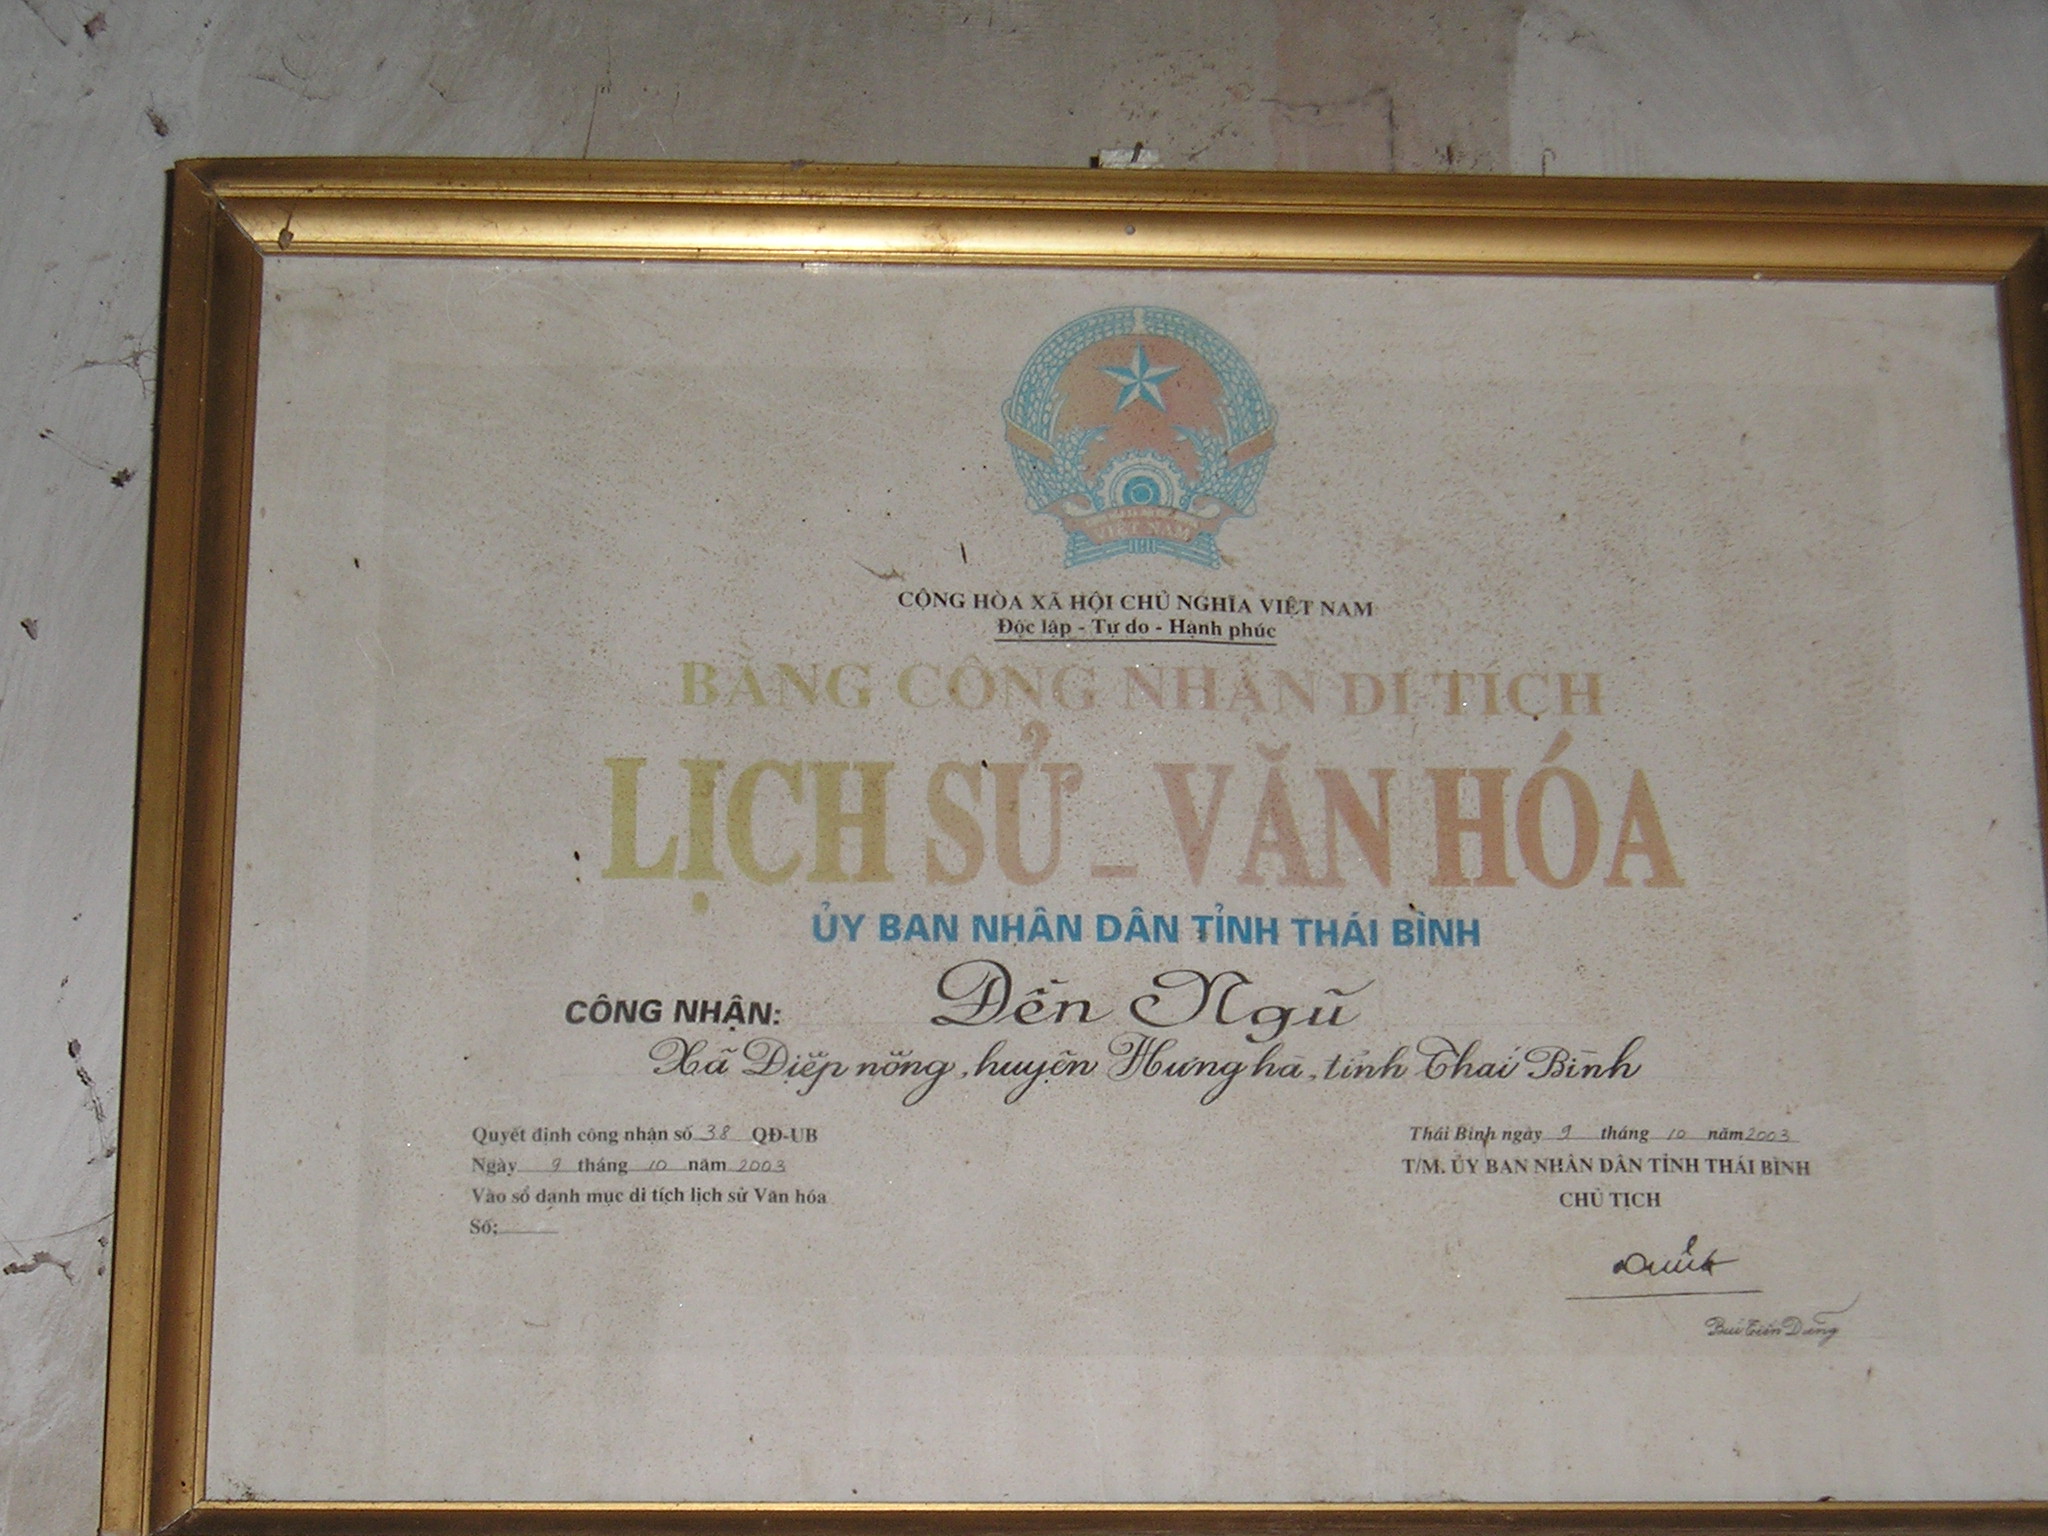 VIỆT NAM
CỘNG HÒA XÃ HỘI CHỦ NGHĨA VIỆT NAM
Độc lập - Tự do - Hạnh phúc
BẰNG CÔNG NHẬN DI TÍCH
LỊCH SỬ - VĂN HÓA
ỦY BAN NHÂN DÂN TỈNH THÁI BÌNH
CÔNG NHẬN: Đền Ngũ
Xã Điệp nông, huyện Hưng hà, tỉnh Thái Bình
Quyết định công nhận số 38 QĐ-UB
Ngày 9 tháng 10 năm 2003
Vào sổ danh mục di tích lịch sử Văn hóa
Số:
Thái Bình ngày 9 tháng 10 năm 2003
T/M. ỦY BAN NHÂN DÂN TỈNH THÁI BÌNH
CHỦ TỊCH
Bùi Tiến Dũng